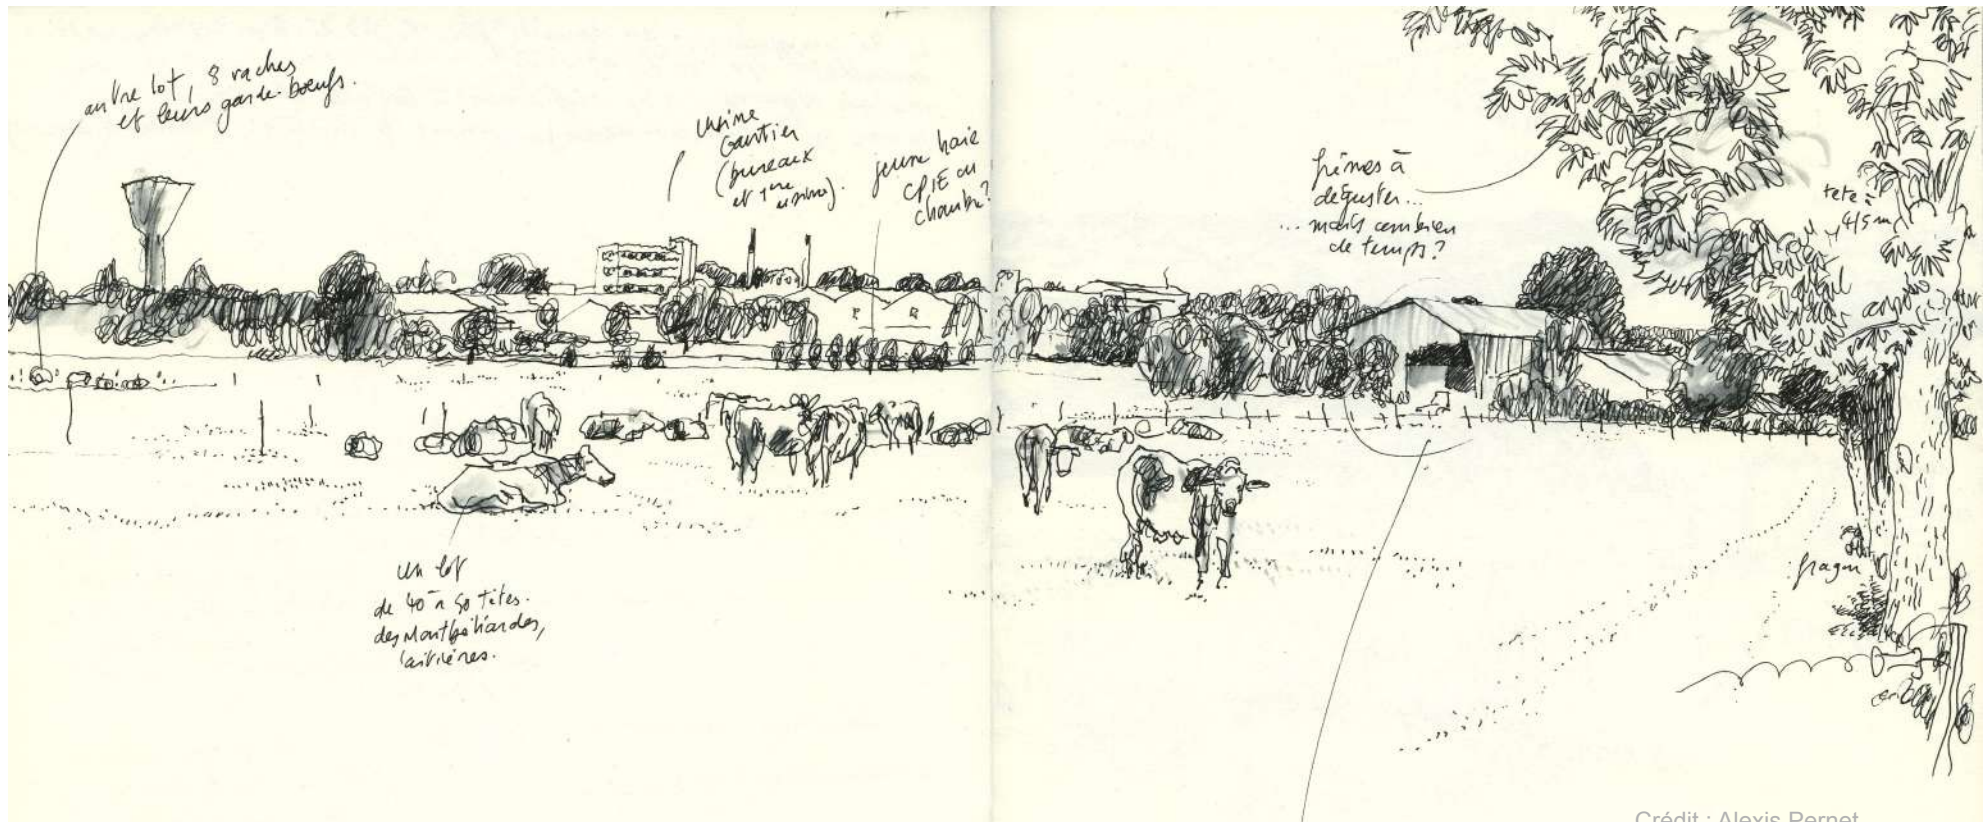 autre lot, 8 vaches
et leurs garde-bœufs.
usine
Gautier
(bureaux
et 1ère
usine).
jeune haie
CPIE ou
chambre?
frênes à
déguster...
... mais combien
de temps?
tete à
4/5 m
un lot
de 40 à 50 têtes.
des Montbéliardes,
laitières.
fragon
Crédit : Alexis Pernet